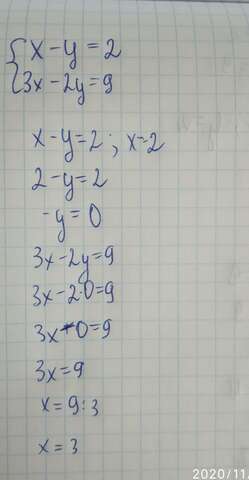 x - y = 2
3x - 2y = 9
x - y = 2 ; x = 2
2 - y = 2
- y = 0
3x - 2y = 9
3x - 2·0 = 9
3x - 0 = 9
3x = 9
x = 9 : 3
x = 3
2020/11